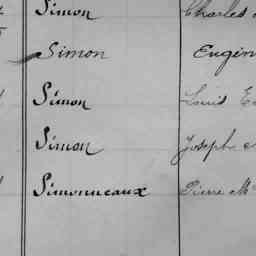 Simon Charles
Simon Eugèn
Simon Louis E
Simon Joseph
Simonneaux Pierre M